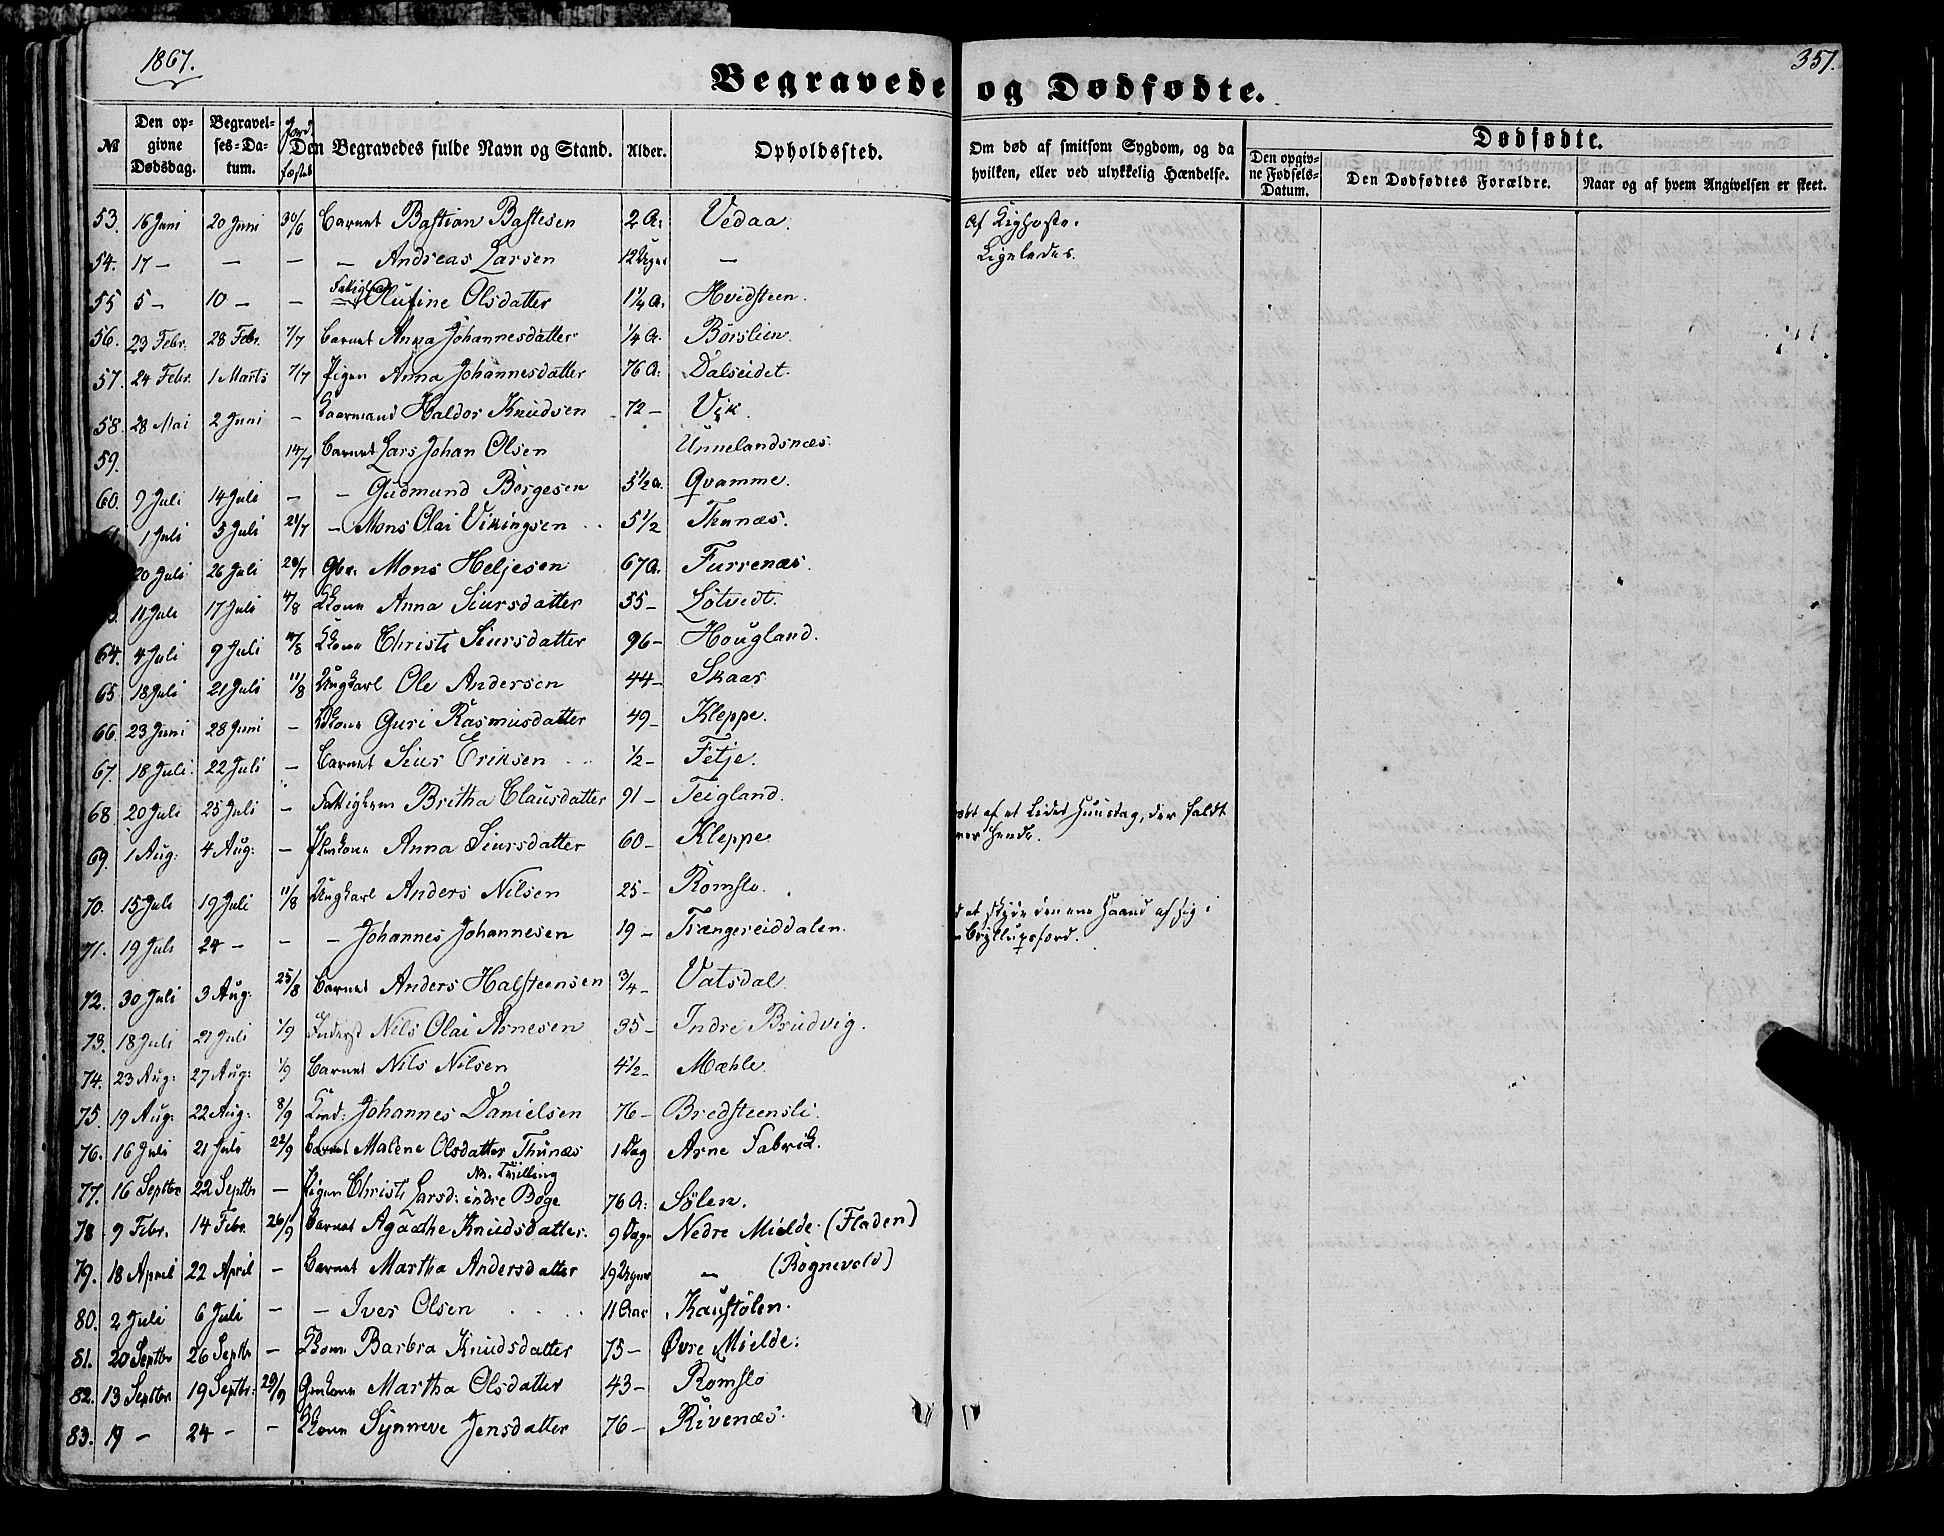 1867.
357.
Begravede og Dødfødte.
№ Den opgivne Dødsdag. Begravelses-Datum. Jordfæstet Den Begravedes fulde Navn og Stand. Alder. Opholdssted. Om død af smitsom Sygdom, og da hvilken, eller ved ulykkelig Hændelse. Dødfødte. Den opgivne Fødsels-Datum. Den Dødfødtes Forældre. Naar og af hvem Angivelsen er skeet.
53. 16 Juni 20 Juni 30/6 Barnet Bastian Bastesen 2 A. Vedaa. Af Kighoste.
54. 17 - - - - Andreas Larsen 12 Uger - Ligeledes.
55 5 - 10 - - Olufine Olsdatter 1¼ A. Hvidsteen.
56. 23 Febr. 28 Febr. 7/7 Barnet Anna Johannesdatter ¼ A. Børslien.
57. 24 Febr. 1 Marts 7/7 Pigen Anna Johannesdatter 76 A. Dalseidet.
58. 28 Mai 2 Juni - Kaarmand Haldor Knudsen 72 - Vik.
59. 14/7 Barnet Lars Johan Olsen Unnelandsnæs.
60. 9 Juli 14 Juli - - Gudmund Børgesen 5½ A. Qvamme.
1 Juli 5 Juli 21/7 - Mons Olai Vikingsen 5½ Thunæs.
20 Juli 26 Juli 28/7 Gbr. Mons Heljesen 67 A. Furrenæs.
11 Juli 17 Juli 4/8 Kkone Anna Siursdatter 55 - Løtvedt.
64. 4 Juli 9 Juli Kkone Christi Siursdatter 96 - Hougland.
65 18 Juli 21 Juli 11/8 Ungkarl Ole Andersen 44 - Skaar
66. 23 Juni 28 Juni - Guri Rasmusdatter 49 - Kleppe.
67. 18 Juli 22 Juli - Barnet Siur Eriksen ½ - Fetje.
68 20 Juli 25 Juli - Fattiglem Britha Clausdatter 91 - Teigland.
69. 1 Aug: 4 Aug: - Anna Siursdatter 60 - Kleppe af et Lidet Huustag, der faldt
over hende.
70. 15 Juli 19 Juli 11/8 Ungkarl Anders Nilsen 25 - Romslo.
71. 19 Juli 24 - - - Johannes Johannesen 19 - Trængereiddalen. at skyde den ene Haand af sig i
Bryllupsfærd.
72. 30 Juli 3 Aug: 25/8 Barnet Anders Halsteensen ¾ - Vatsdal.
73. 18 Juli 21 Juli 1/9 Inderst Nils Olai Arnesen 35 - Indre Brudvig.
74. 23 Aug: 27 Aug: 1/9 Barnet Nils Nilsen 4½ - Mæhle.
75. 19 Aug. 22 Aug: 8/9 Johannes Danielsen 76 - Bredsteensli.
76. 16 Juli 21 Juli 22/9 Barnet Malene Olsdatter Thunæs 1 Dag Arne Fabrik.
No. Tvilling
77. 16 Septbr 22 Septbr - Pigen Christi Larsd: indre Boge 76 A. Sølen.
78 9 Febr. 14 Febr. 26/9 Barnet Agaathe Knudsdatter. 9 Dage Nedre Mielde (Fladen)
79. 18 April 22 April - Barnet Martha Andersdatter 19 Uger - (Rognevold)
80. 2 Juli 6 Juli - - Iver Olsen 11 Aar Kaustølen.
81. 20 Septbr 26 Septbr - Kkone Barbra Knudsdatter 75 - Øvre Mielde.
82. 13 Septbr 19 Septbr. 29/9 Martha Olsdatter 43 - Romslo
83. 19 - 24 - - Kkone Synneve Jensdatter 76 - Rivenæs.